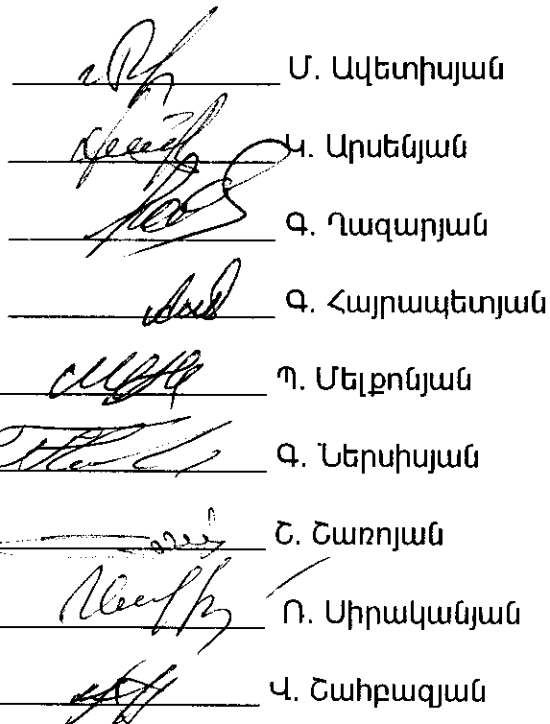 Մ. Ավետիսյան
Կ. Արսենյան
Գ. Ղազարյան
Գ. Հայրապետյան
Պ. Մելքոնյան
Գ. Ներսիսյան
Շ. Շառոյան
Ռ. Սիրականյան
Վ. Շահբազյան